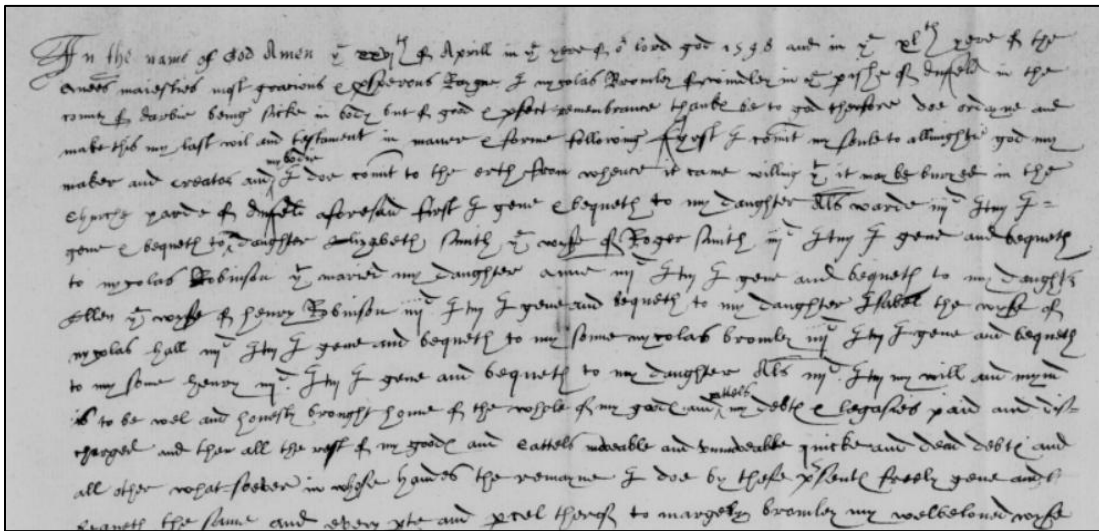 In the name of God Amen ye xxvith of Aprill in ye yere of or lord god 1598 and in ye xlth yere of the
Quees maiesties most gracious & psperous Raigne I nycolas Bromley of in ye pishe of duffeld in the
county of darbie being sicke in body but of god & pfect remembrance thanke be to god therfore doe ordayne and
make this my last wil and testament in maner & forme following fyrst I comit my soule to allmightie god my
maker and creator and my bodie I doe comit to the erth from whence it came willing yt it may be buryed in the
Churche yarde of duffeld aforesaid first I geve & bequeth to my daughter Als warde iiijd Itm I
geve & bequeth to daughter Elizabeth smith ye wyffe of Roger smith iiijd Itm I geve and bequeth
to nycolas Robinson yt maried my daughter anne iiijd Itm I geve and bequeth to my daughter
Ellen ye wyffe of henry Robinson iiijd Itm I geve and bequeth to my daughter Isabel the wyffe of
nycolas hall iiijd Itm I geve and bequeth to my sonne nycolas bromley iiijd Itm I geve and bequeth
to my sonne henry iiijd Itm I geve and bequeth to my daughter Als iiijd Itm my will and mynd
is to be wel and honestly brought home of the whole of my goodes and cattels my debtes & legasies paid and dis-
charged and then all the rest of my goodes and Cattels moveable and unmoveable quicke and dead debtes and
all other what soever in whose handes the remayne I doe by these psentes freely geve and
bequeth the same and every pte and pcel therof to margery bromley my welbeloved wyffe